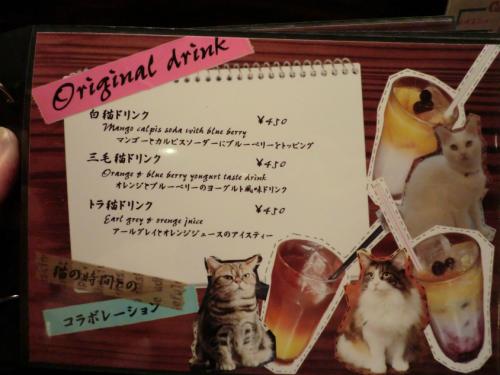 Original drink
白猫ドリンク ¥450
Mango calpis soda with blue berry
マンゴーとカルピスソーダーにブルーベリーをトッピング
三毛猫ドリンク ¥450
Orange & blue berry yougurt taste drink
オレンジとブルーベリーのヨーグルト風味ドリンク
トラ猫ドリンク ¥450
Earl grey & orenge juice
アールグレイとオレンジジュースのアイスティー
猫の時間との
コラボレーション